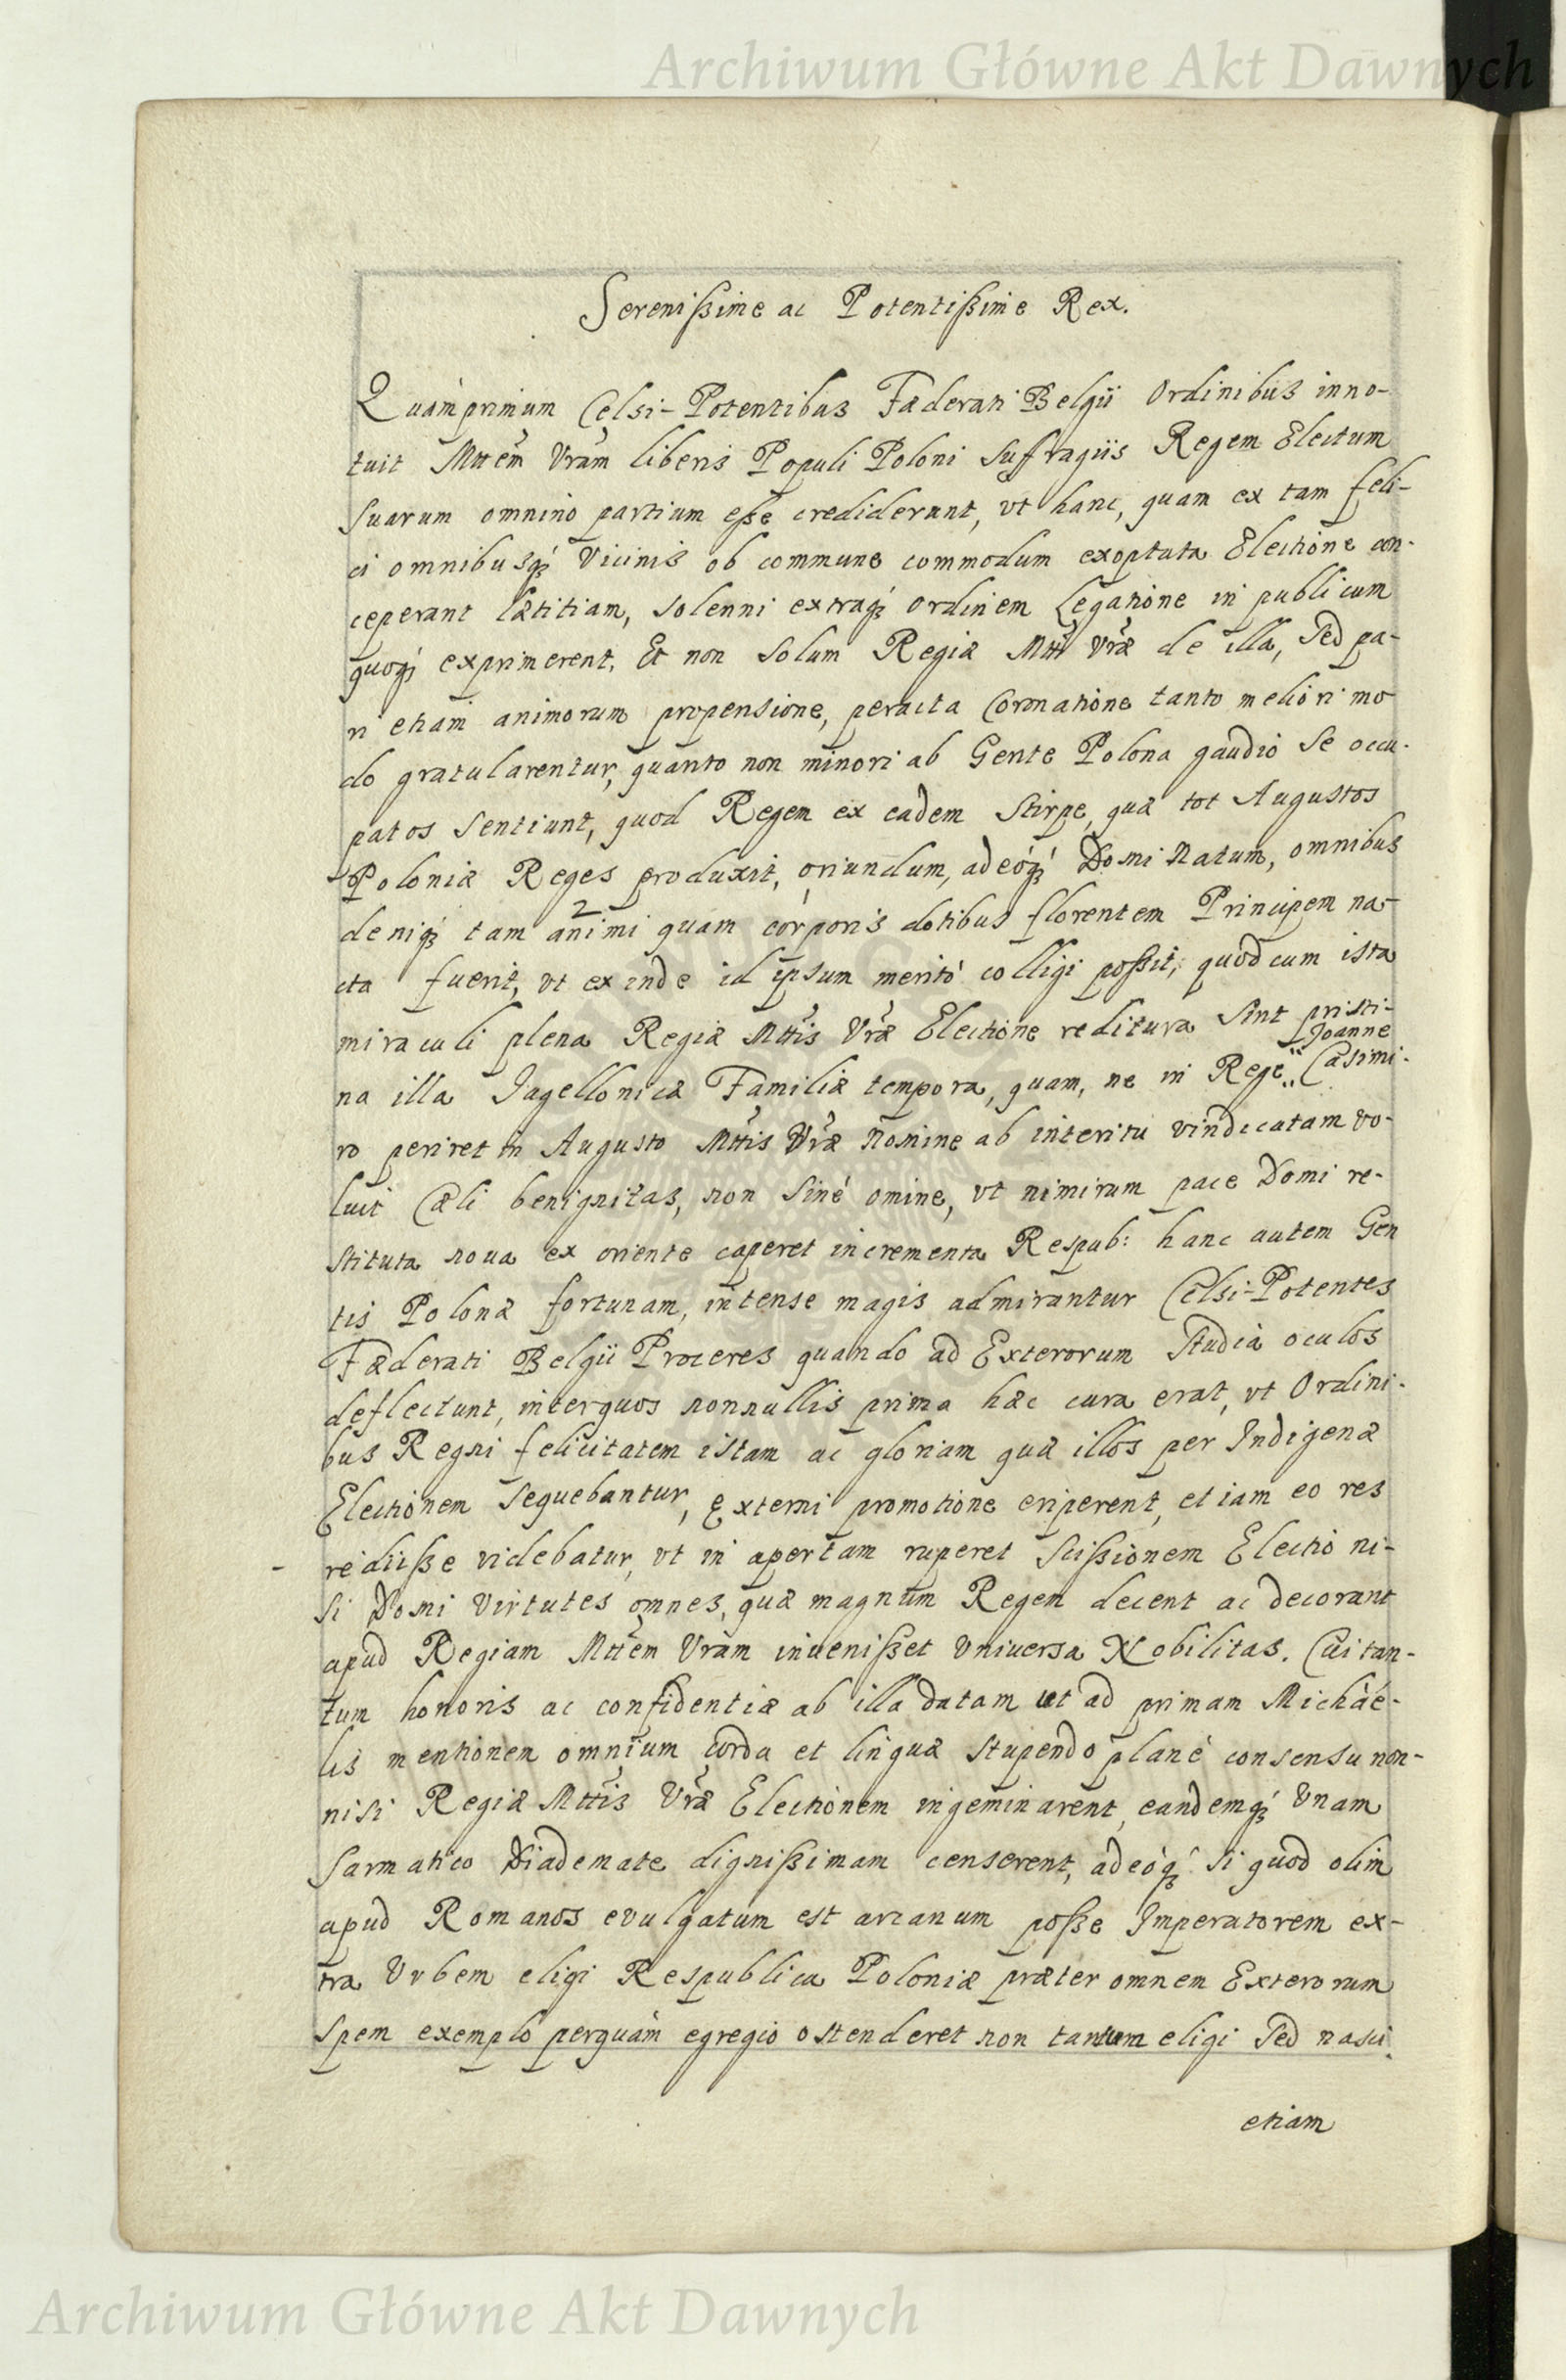 Archiwum Główne Akt Dawnych
Serenißime ac Potentißime Rex.
Quámprimum Celsi-Potentibus Fæderati Belgii Ordinibus inno-
tuit Mttem Vram liberis Populi Poloni Suffragiis Regem Electum
Suarum omnino partium eße crediderunt, vt hanc, quam ex tam feli-
ci omnibusq́ Vicinis ob commune commodum exoptata Electione con-
ceperant lætitiam, Solenni extraq́ Ordinem Legatione in publicum
quoq́ exprimerent, Et non Solum Regiæ Mtti Vræ de illa, Sed pa-
ri etiam animorum propensione, peracta Coronatione tanto meliori mo
do gratularentur, quanto non minori ab Gente Polona gaudio Se occu-
patos Sentiunt, quod Regem ex eadem Stirpe, quæ tot Augustos
Poloniæ Reges produxit, oriundum, adeóq́ Domi Natum, omnibus
deniq́ tam animi quam córporis dotibus florentem Principem na-
cta fuerit, vt exinde id ipsum meritó colligi poßit, quód cum ista
miraculi plena Regiæ Mttis Vræ Electione reditura Sint pristi-
na illa Jagellonicæ Familiæ tempora, quam, ne in Rege Joanne Casimi-
ro periret in Augusto Mttis Vræ Nomine ab interitu vindicatam vo-
luit Cæli benignitas, non Siné omine, vt nimirum pace Domi re-
stituta noua ex oriente caperet incrementa Respub: hanc autem Gen
tis Polonæ fortunam, intense magis admirantur Celsi-Potentes
Fæderati Belgii Proceres quando ad Exterorum Studia oculos
deflectunt, interquos nonnullis prima hæc cura erat, vt Ordini-
bus Regni felicitatem istam ac gloriam quæ illos per Indigenæ
Electionem Sequebantur, Externi promotione eriperent, etiam eo res
rediiße videbatur, vt in apertam ruperet Scißionem Electio ni-
Si Domi Virtutes omnes, quæ magnum Regem decent ac decorant
apud Regiam Mttem Vram inuenißet Vniuersa Nobilitas. Cui tan-
tum honoris ac confidentiæ ab illa datam ut ad primam Michaé-
lis mentionem omnium corda et linguæ Stupendo plané consensu non-
nisi Regiæ Mttis Vræ Electionem ingeminarent, eandemq́ Vnam
Sarmatico Diademate dignißimam censerent, adeóq́ Si quod olim
apud Romanos evulgatum est arcanum poße Imperatorem ex-
tra Vrbem eligi Respublica Poloniæ præter omnem Exterorum
Spem exemplo perquám egregio ostenderet non tantum eligi Sed nasci
etiam
Archiwum Główne Akt Dawnych